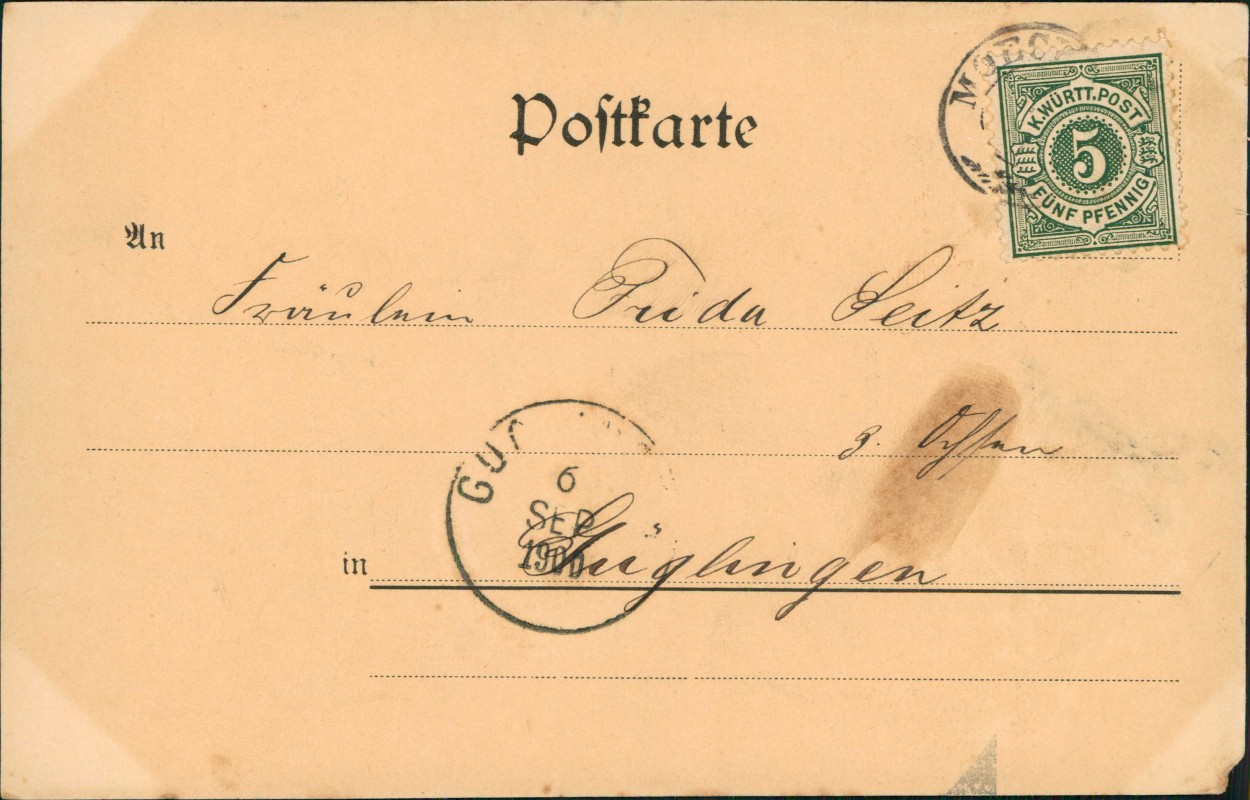 Postkarte
K. WÜRTT. POST
5
FÜNF PFENNIG
An
Fräulein Frida Seitz
z. Ochsen
6
SEP
1900
in Güglingen